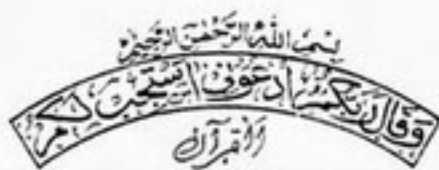 بسم الله الرحمن الرحيم
وقال ربكم ادعوني استجب لكم
القرآن